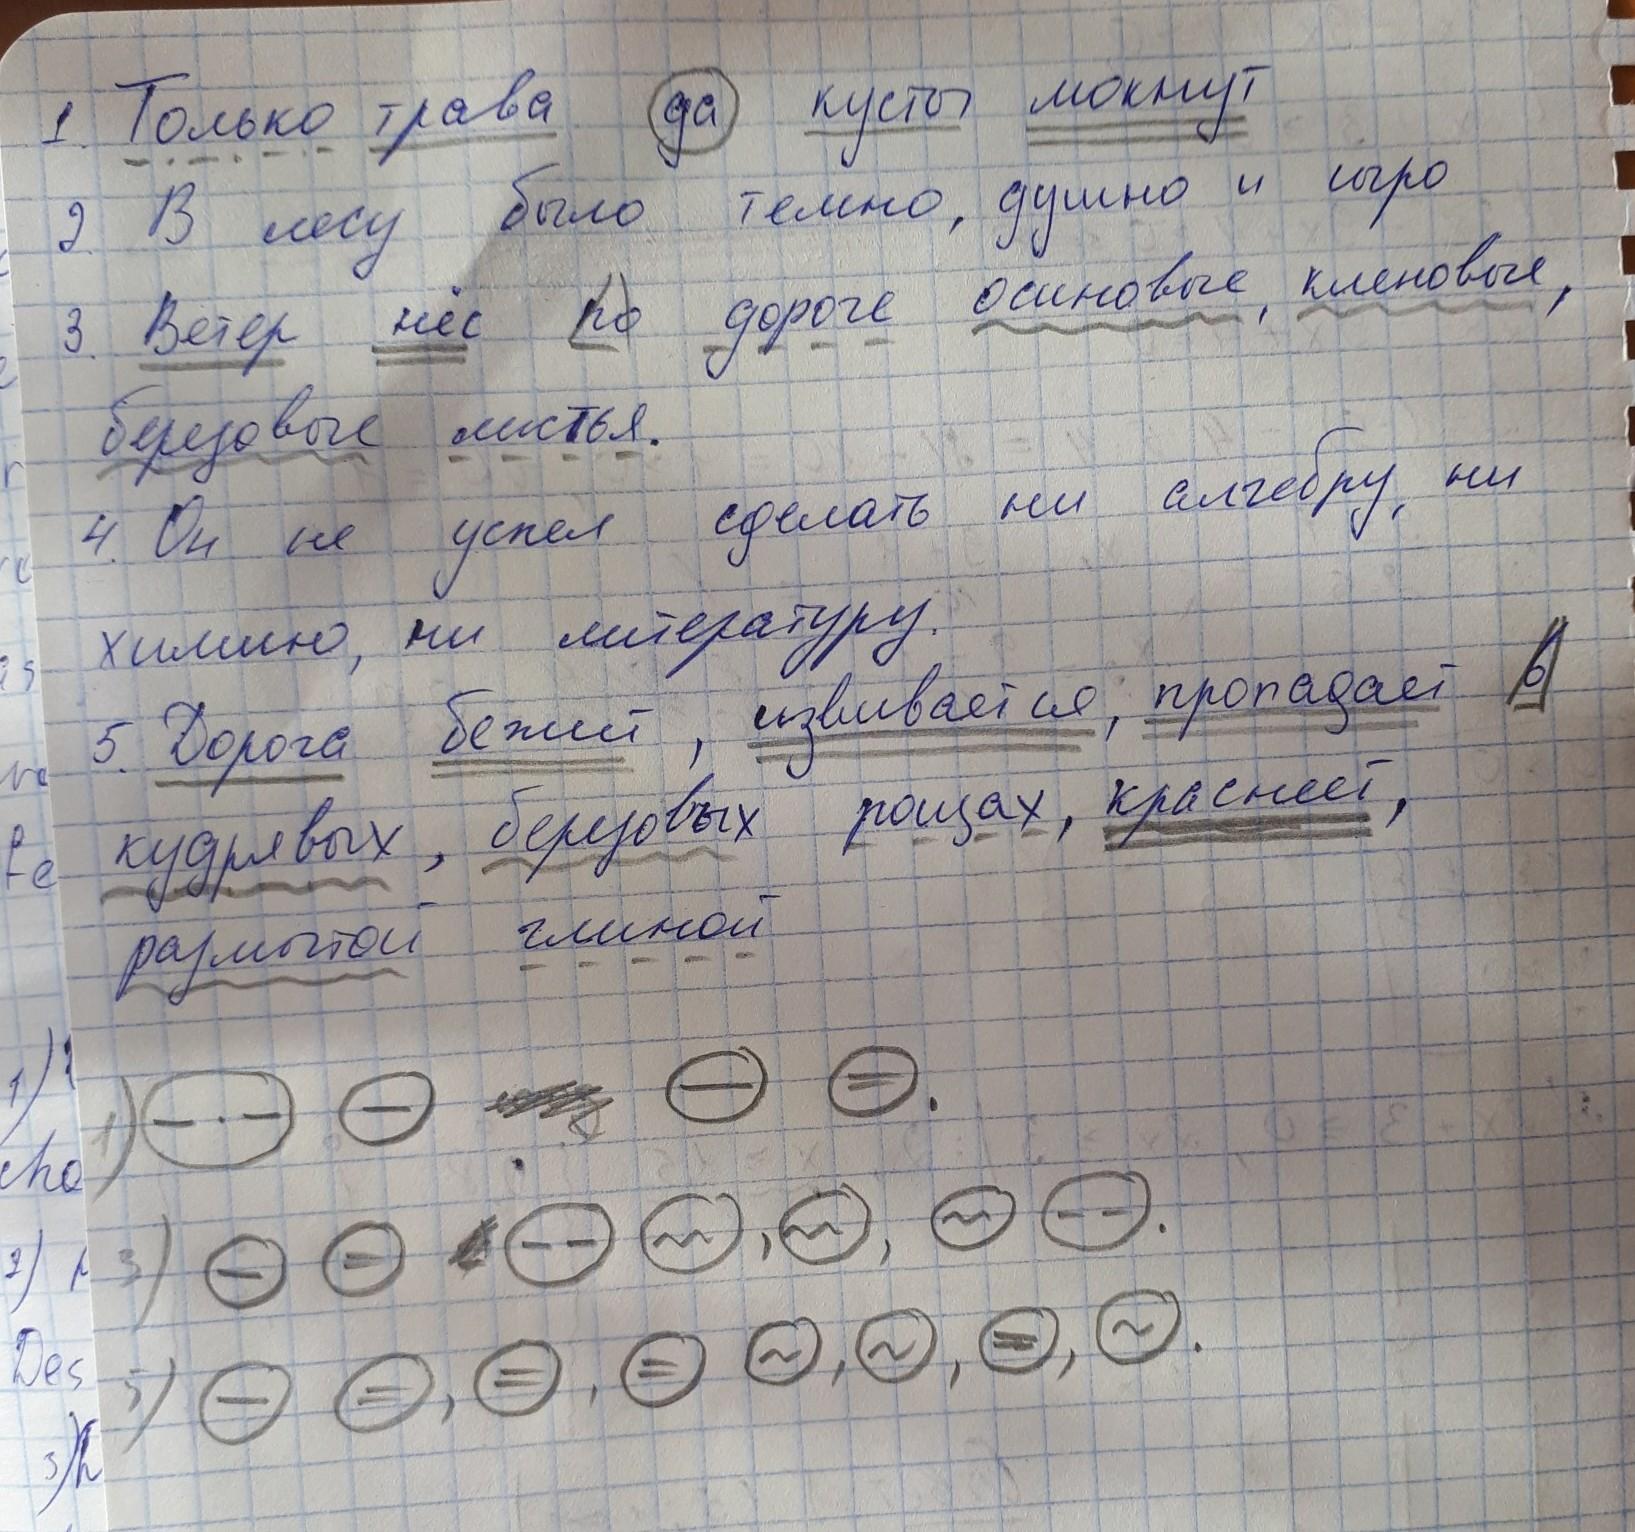 1. Только трава да кусты мокнут
2. В лесу было темно, душно и сыро
3. Ветер нёс по дороге осиновые, кленовые,
березовые листья.
4. Он не успел сделать ни алгебру, ни
химию, ни литературу.
5. Дорога бежит, извивается, пропадает в
кудрявых, березовых рощах, краснеет,
размытой глиной
1)
3)
5)
1)
cho
2)
Des
3)